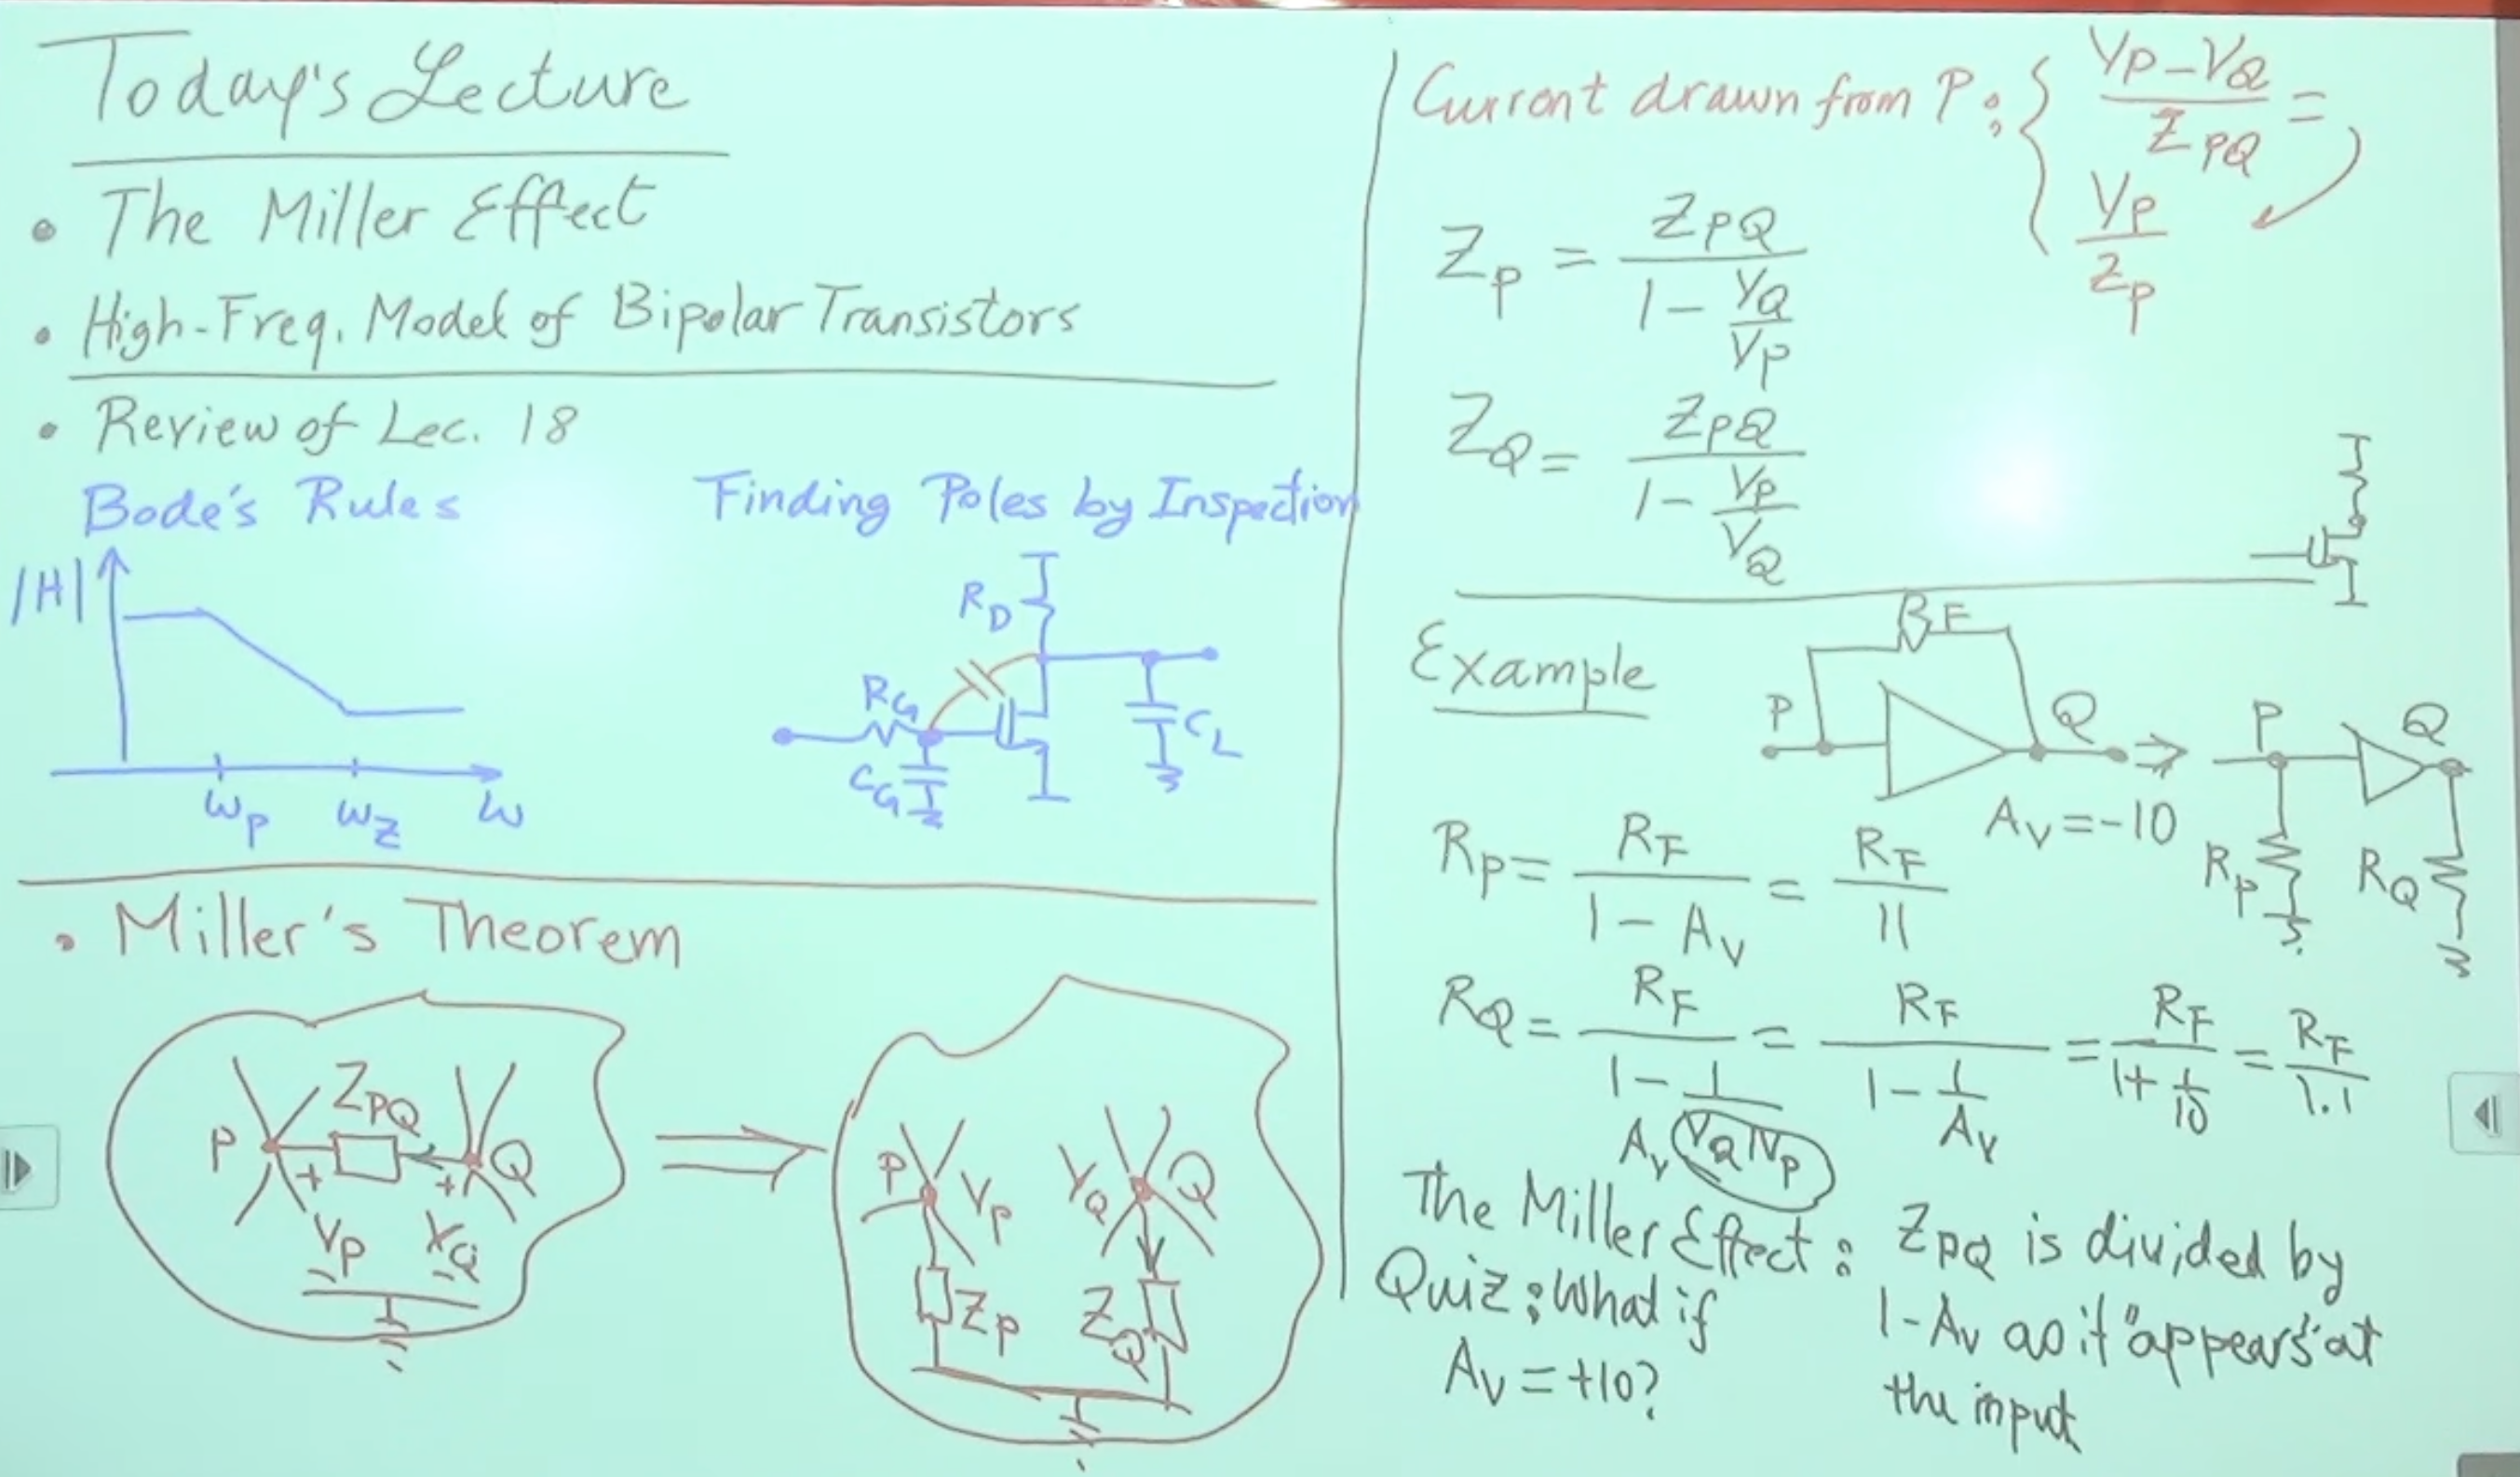 Today's Lecture
• The Miller Effect
• High-Freq. Model of Bipolar Transistors
• Review of Lec. 18
Bode's Rules
|H|
ωp ωz ω
Finding Poles by Inspection
RD
RG
CG
CL
• Miller's Theorem
P ZPQ Q
+ +
VP VQ
P VP VQ Q
ZP ZQ
Current drawn from P: { (VP - VQ)/ZPQ =
VP/ZP
ZP = ZPQ/(1 - VQ/VP)
ZQ = ZPQ/(1 - VP/VQ)
Example
RF
P Q ⇒ P Q
AV = -10
RP RQ
RP = RF/(1 - AV) = RF/11
RQ = RF/(1 - 1/AV) = RF/(1 - 1/AV) = RF/(1 + 1/10) = RF/1.1
VQ/VP
The Miller Effect: ZPQ is divided by
1 - AV as it "appears" at
the input
Quiz: What if
AV = +10?